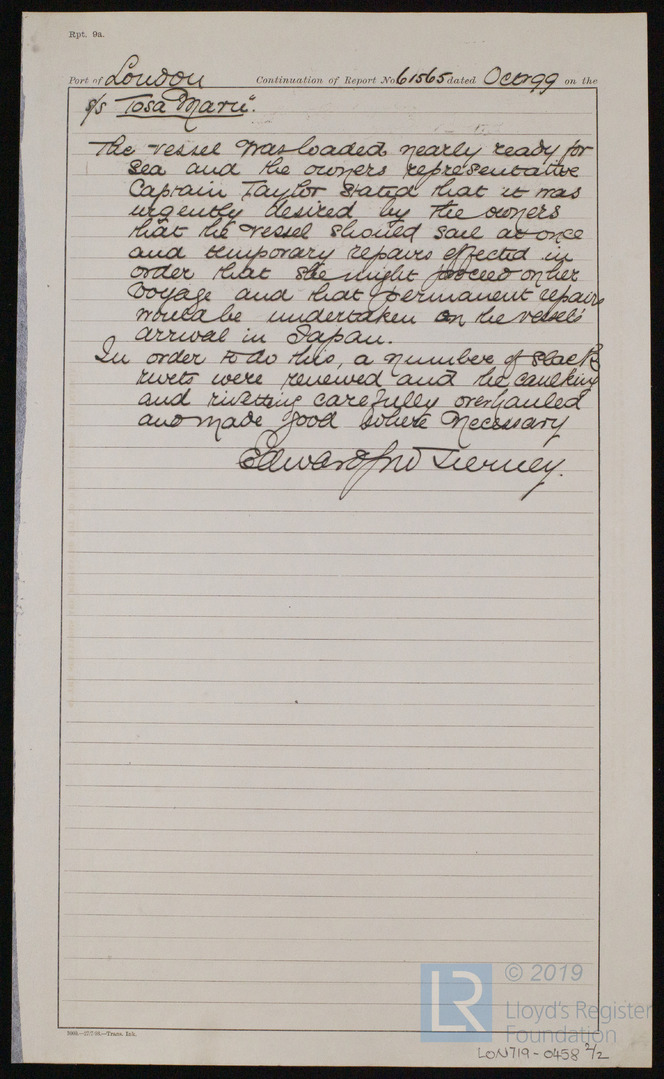 Rpt. 9a.
Port of London Continuation of Report No 61565 dated Oct 99 on the
s/s "Tosa Maru".
The vessel was loaded nearly ready for
sea and the owners representative
Captain Taylor stated that it was
urgently desired by the owners
that the vessel should sail at once
and temporary repairs effected in
order that she might proceed on her
voyage and that permanent repairs
would be undertaken on the vessel's
arrival in Japan.
In order to do this, a number of slack
rivets were renewed and the caulking
and rivetting carefully overhauled
and made good where necessary
Edward Tierney.
—Trans. Ink.
LR © 2019
Lloyd's Register
Foundation
LON719-0458 2/2